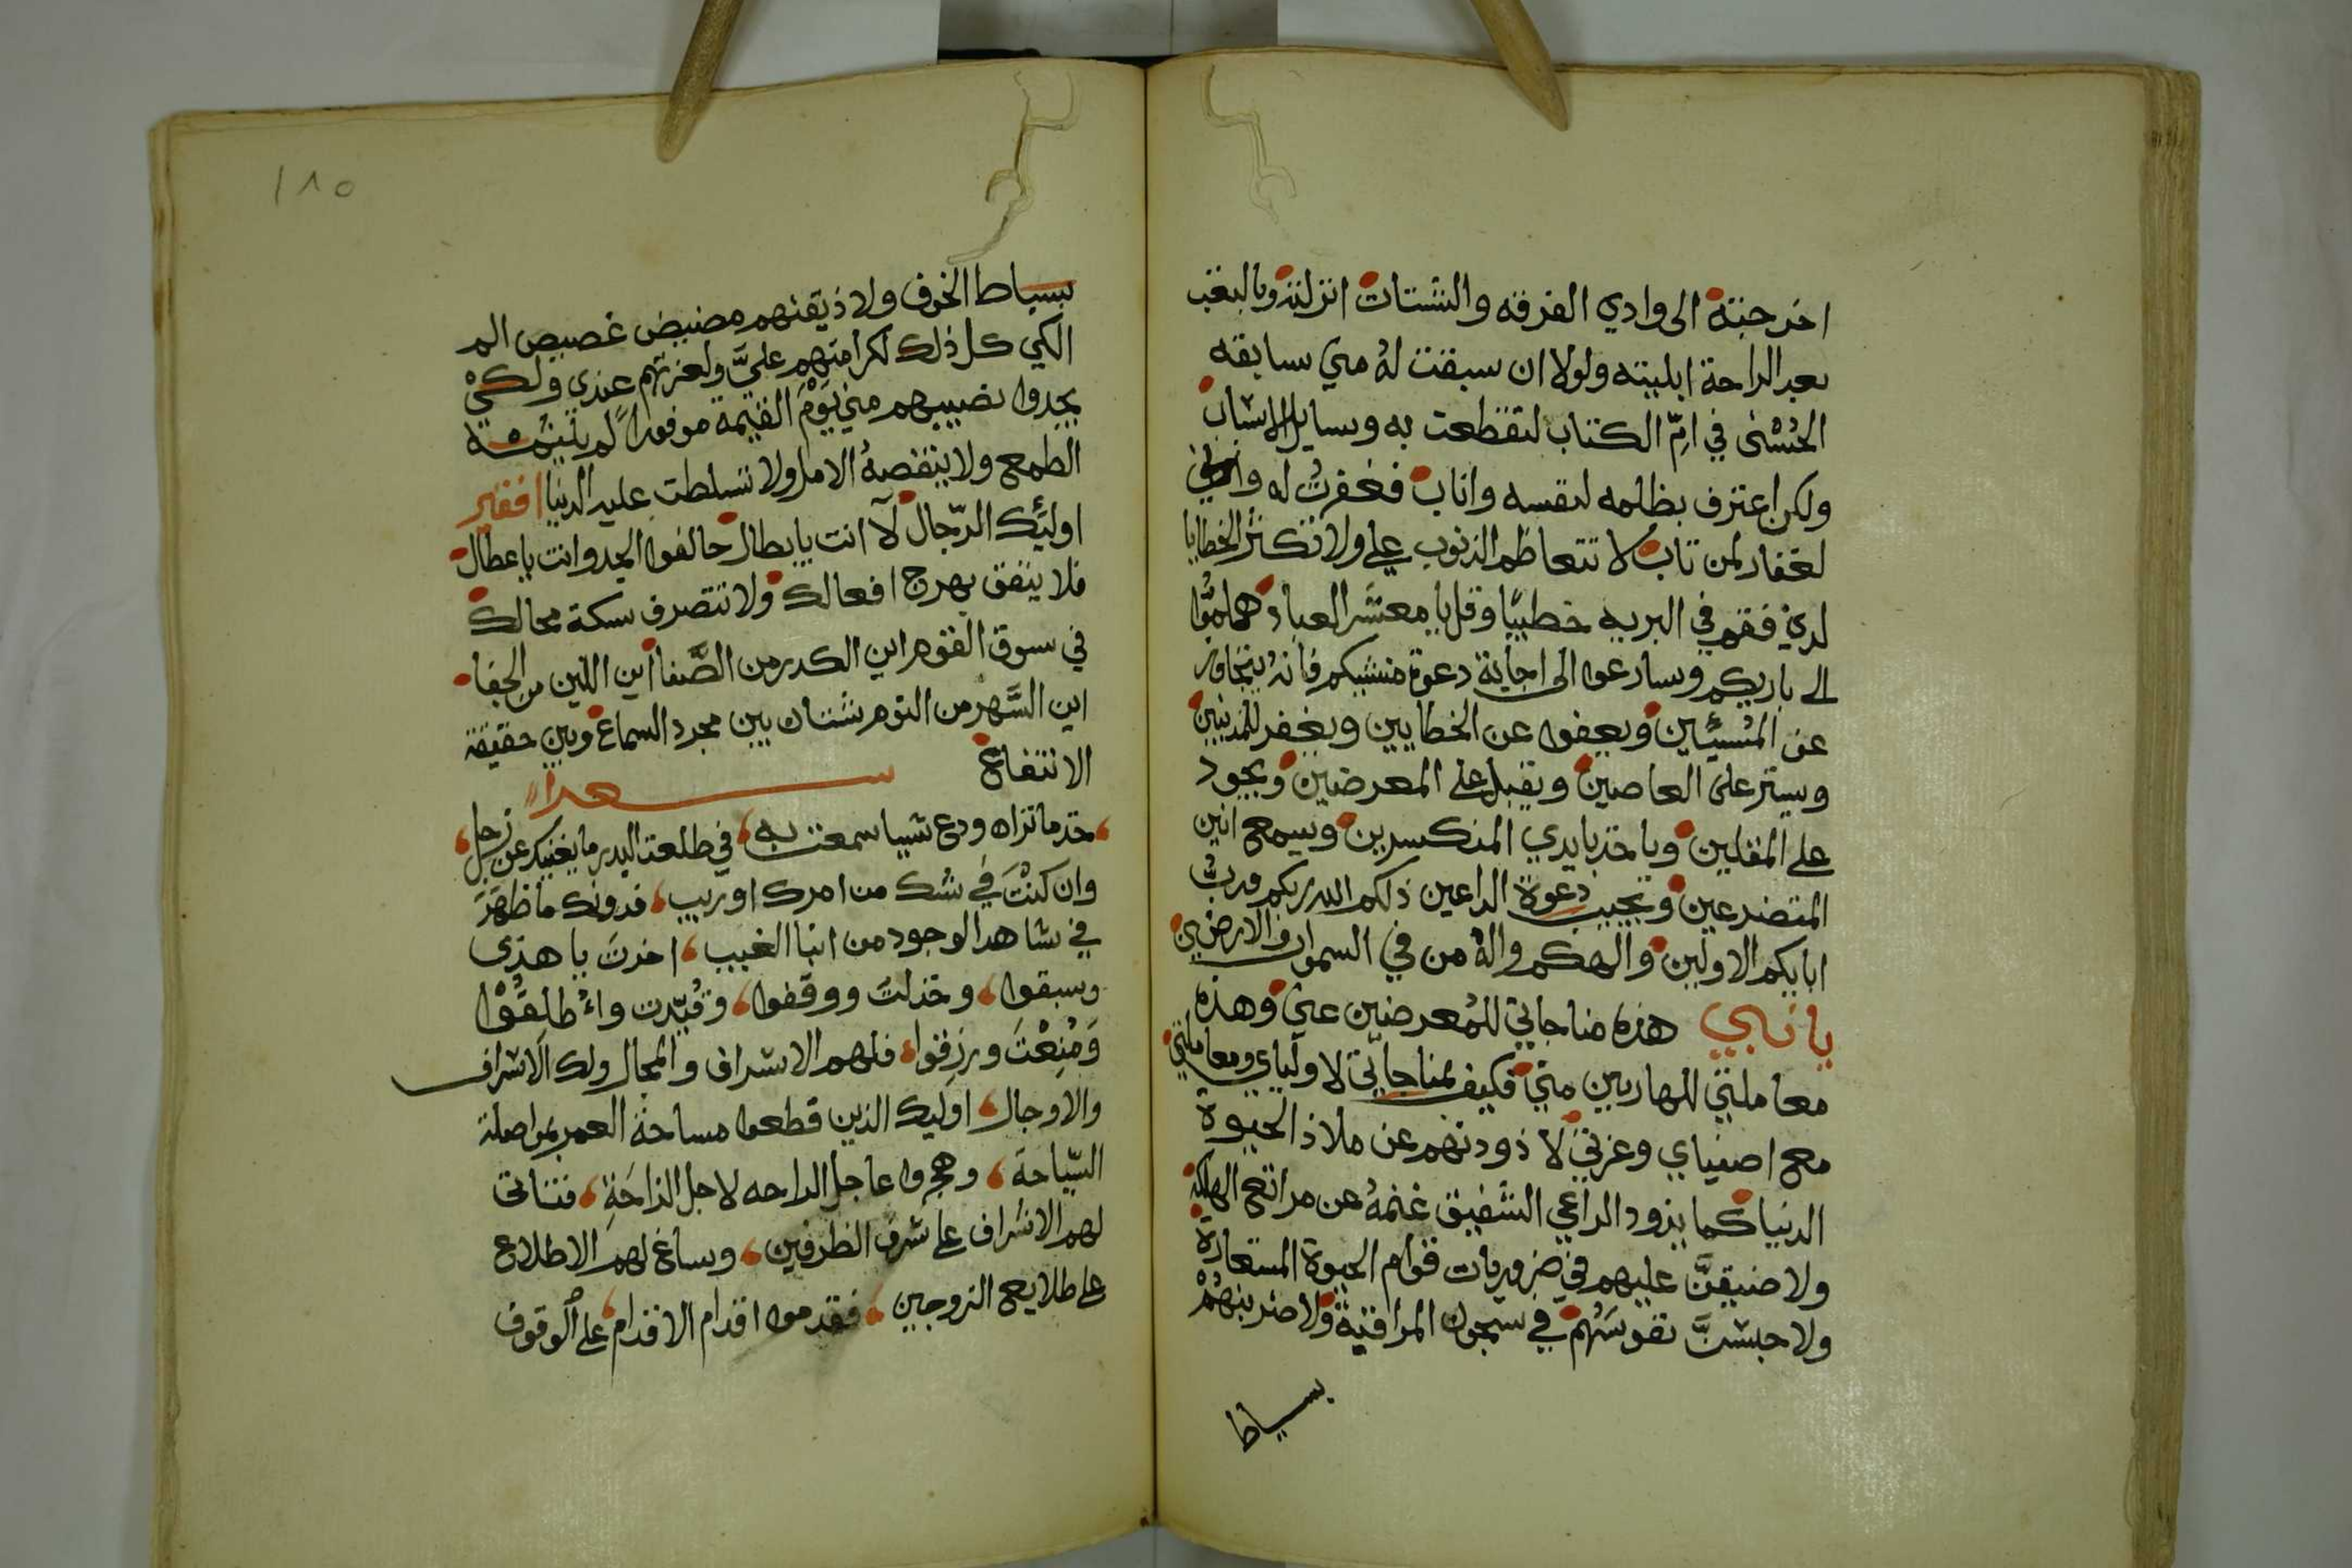 اخرجته الى وادي الفرقه والشتات انزلته وبالتعب
بعد الراحة ابليته ولولا ان سبقت لهُ مني سابقه
الحُسْنى في امِّ الكتاب لتقطعت به وسايل الاسباب
ولكن اعترف بظلمه لنفسه واناب فغفرتُ له واني
لغفار لمن تاب لا تتعاظم الذنوب علي ولا تكثر الخطايا
لديّ فقم في البريه خطيبًا وقل يا معشر العباد هلمُّوا
الى باريكم وسارعوا الى اجابة دعوة منشيكم فانهُ يتجاوز
عن المُسيئين ويعفوا عن الخطايين ويغفر للمذنبين
ويستر على العاصين ويقبل على المعرضين ويجود
على المقلين وياخذ بايدي المنكسرين ويسمع انين
المتضرعين ويجيب دعوة الداعين ذلكم الله ربكم وربُّ
ابايكم الاولين والهكم والهُ من في السموات والارضين
يا نبي هذه مناجاتي للمُعرضين عني وهذه
معاملتي للهاربين منّي فكيف بمناجاتي لاوليأي ومعاملتي
مع اصفياي وعزتي لا ذودنهم عن ملاذ الحيوة
الدنيا كما يذود الراعي الشفيق غنمهُ عن مراتع الهلكة
ولا ضيقنَّ عليهم في ضروريات قوام الحيوة المستعارة
ولا حبسنَّ نفوسَهُم في سجون المراقبة ولا ضربنهُمْ
بسياط
١٨٥
بسياط الخوف ولا ذيقنهم مضيض غصيص الم
الكي كل ذلك لكرامتهم عليَّ ولعزتهم عندي ولكيْ
يجدوا نصيبهم مني يَوْمَ القيمة موفورًا لم يثلمه
الطمع ولا ينقصهُ الامل ولا تسلطت عليه الدنيا افقير
اوليَك الرّجال لآ انت يا بطال حالفوا الجد وانت يا عطال
فلا ينفق بهرج افعالك ولا تتصرف سكة محالك
في سوق القوم اين الكدر من الصَّفا اين اللين من الجفا
اين السَّهر من النوم شتان بين مجرد السماع وبين حقيقة
الانتفاع شعر
خذ ما تراه ودع شييا سمعت به في طلعت البدر ما يغنيك عن زحل
وان كنتَ في شك من امرك او ريب فدونك ما ظهَرَ
في شاهد الوجود من انبا الغيب اخرت يا هذي
وسبقوا وخذلتَ ووقفوا وقُيّدت واُطلِقُوْا
وَمُنِعْتَ ورزقوا فلهم الاشراف والمجال ولك الاشراف
والاوجال اوليك الذين قطعوا مساحة العمر بمواصلة
السّياحة وهجروا عاجل الراحه لاجل الراحَةِ فتناتى
لهم الاشراف على شرف الطرفين وساغ لهم الاطلاع
على طلايع الزوجين فقدموا اقدام الاقدام على الوقوف